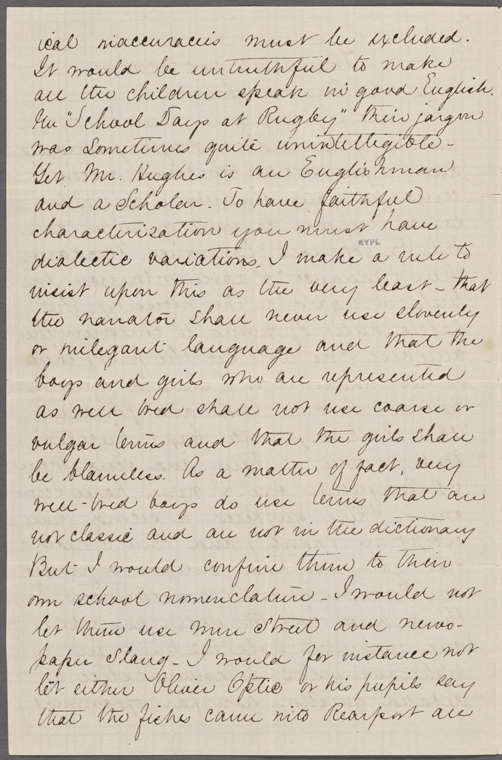 ical inaccuracies must be excluded.
It would be untruthful to make
all the children speak in good English.
In "School Days at Rugby" their jargon
was sometimes quite unintelligible -
Yet Mr. Hughes is an Englishman
and a Scholar. To have faithful
characterization you must have
NYPL
dialectic variations. I make a rule to
insist upon this as the very least - that
the narrator shall never use slovenly
or inelegant language and that the
boys and girls who are represented
as well bred shall not use coarse or
vulgar terms and that the girls shall
be blameless. As a matter of fact, very
well-bred boys do use terms that are
not classic and are not in the dictionary
But I would confine them to their
own school nomenclature - I would not
let them use mere Street and news-
paper Slang - I would for instance not
let either Oliver Optic or his pupils say
that the fishes came into Rearport all